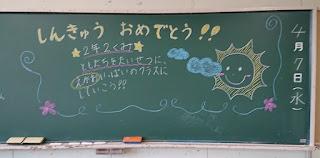 しんきゅう おめでとう!!
★2年2くみ★
ともだちをたいせつに、
えがおいっぱいのクラスに
していこう!!
4月7日(水)